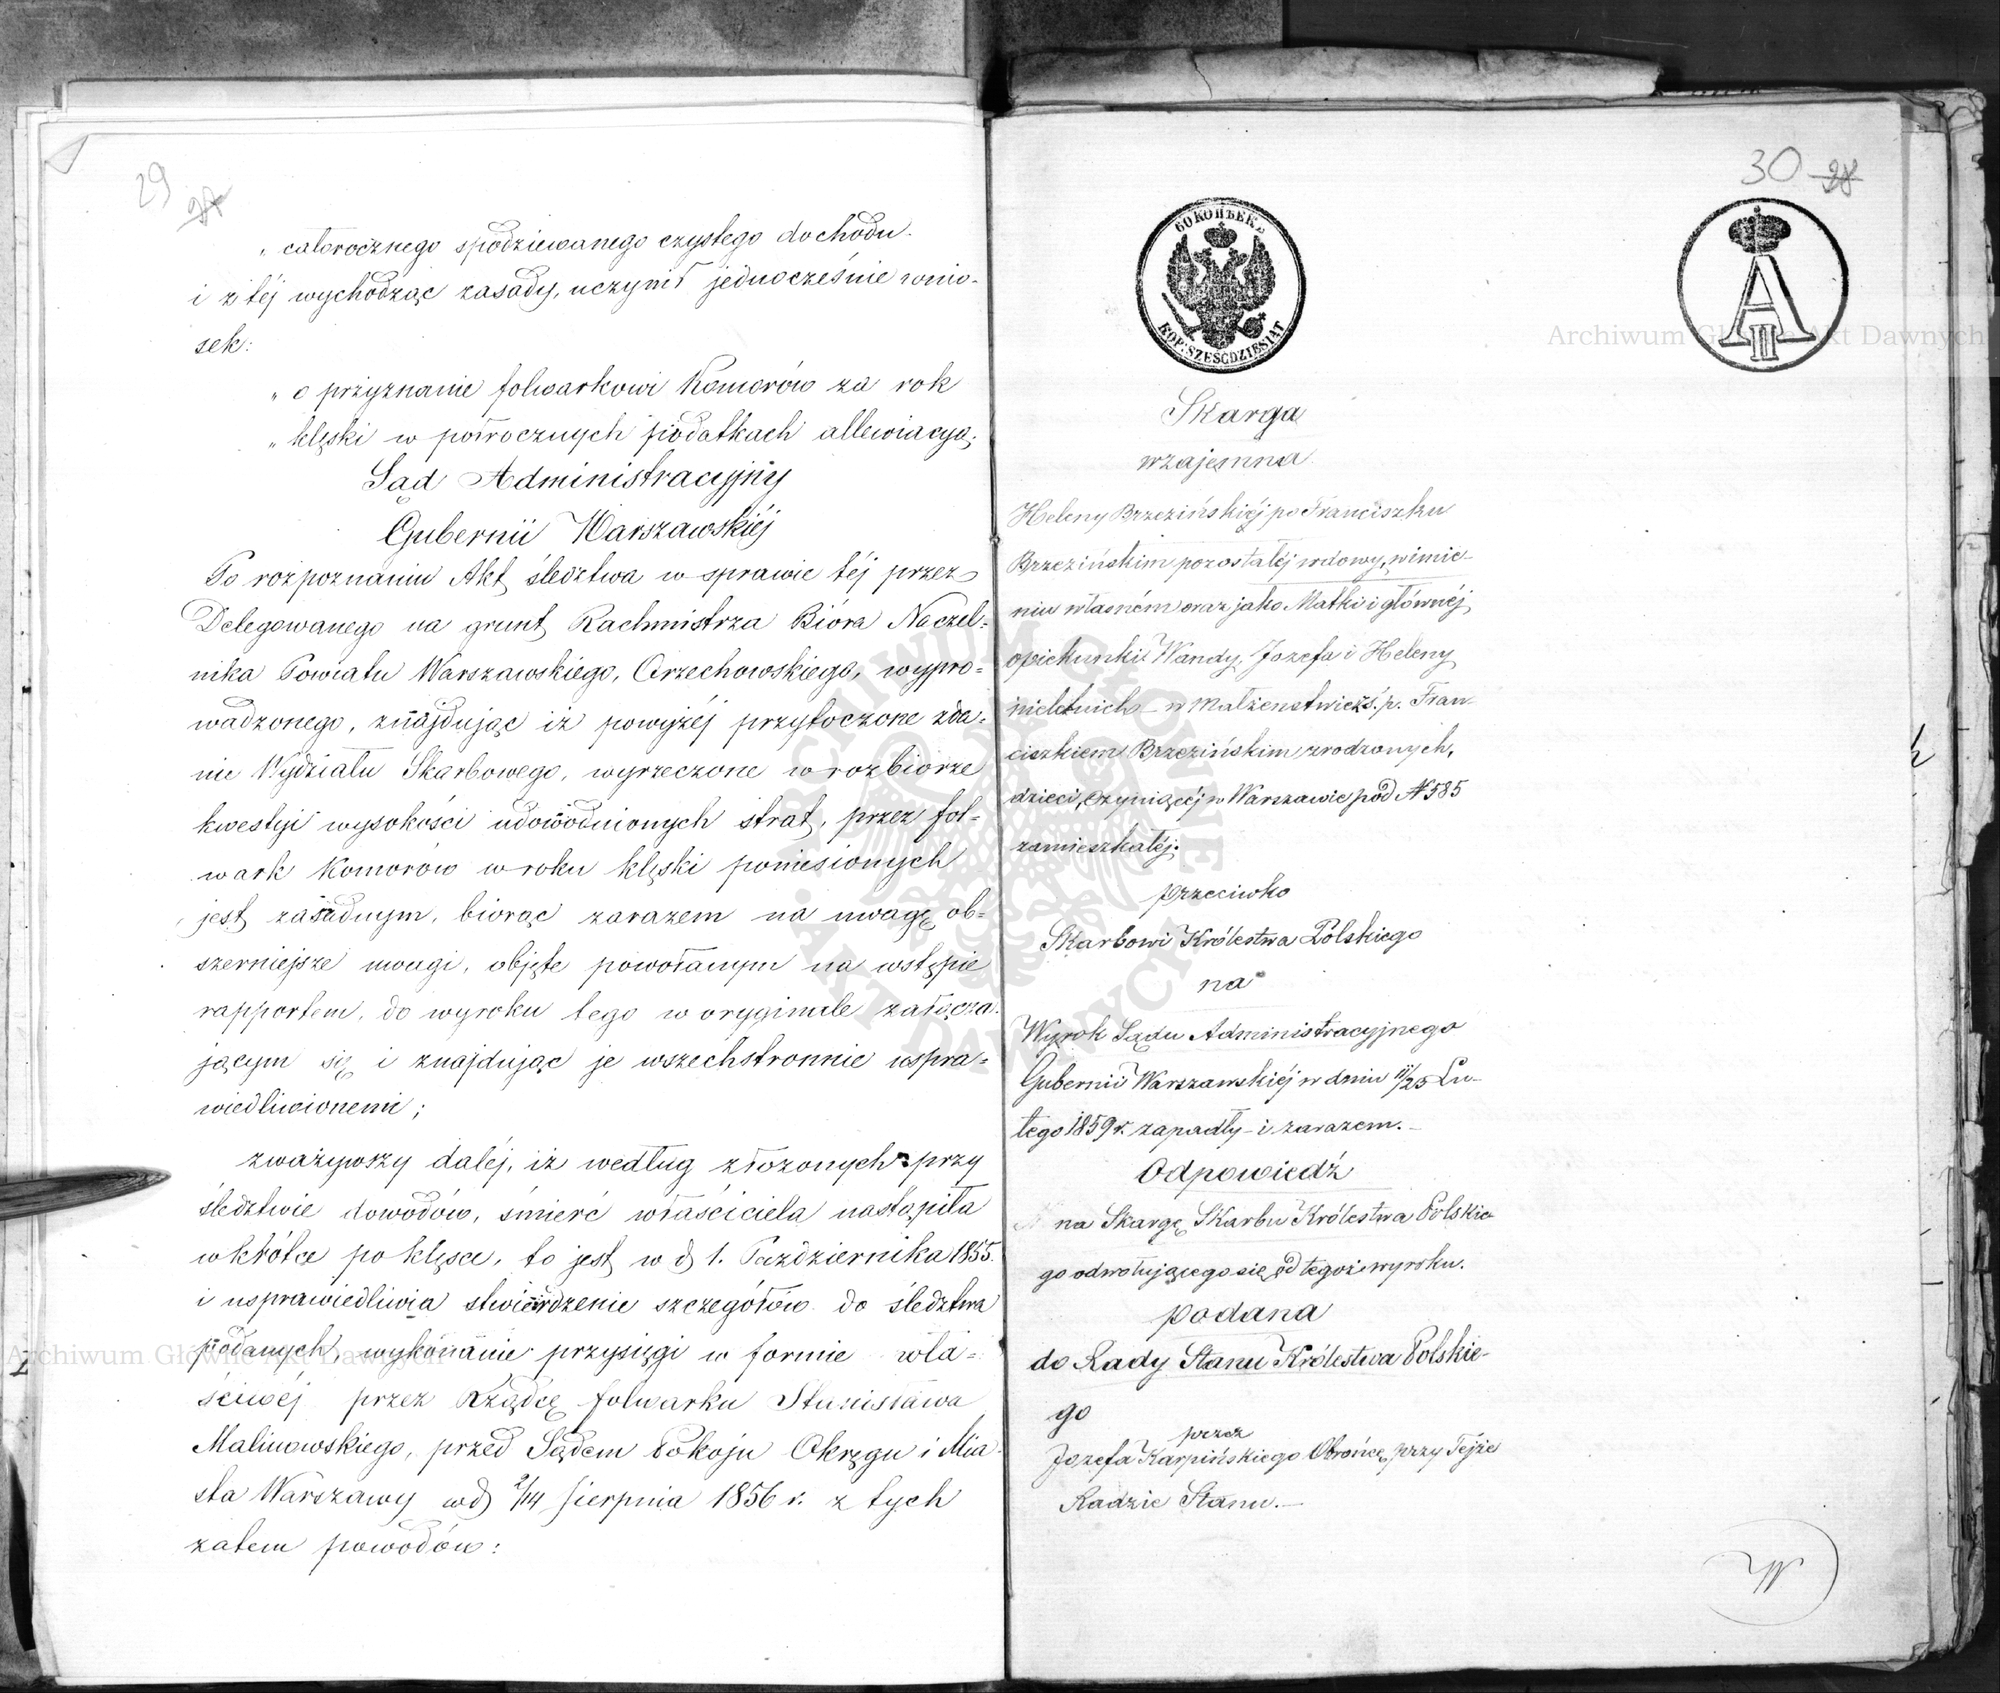 29
27
„ całorocznego spodziewanego czystego dochodu.
i z téj wychodząc zasady, uczynił jednocześnie wnio-
sek:
„ o przyznanie folwarkowi Komorów za rok
„ klęski w półrocznych podatkach allewiacyą;
Sąd Administracyjny
Gubernii Warszawskiéj
Po rozpoznaniu Akt śledztwa w sprawie téj przez
Delegowanego na grunt Rachmistrza Bióra Naczel-
nika Powiatu Warszawskiego, Orzechowskiego, wypro-
wadzonego, znajdując iż powyżéj przytoczone zda-
nie Wydziału Skarbowego, wyrzeczone w rozbiorze
kwestyi wysokości udowodnionych strat, przez fol-
wark Komorów w roku klęski poniesionych
jest zasadnym, biorąc zarazem na uwagę ob-
szerniejsze uwagi, objęte powołanym na wstępie
rapportem, do wyroku tego w oryginale załącza-
jącym się i znajdując je wszechstronnie uspra-
wiedliwionemi;
zważywszy daléj, iż według złożonych przy
śledztwie dowodów, śmierć właściciela nastąpiła
wkrótce po klęsce, to jest w d 1. Października 1855.
i usprawiedliwia stwierdzenie szczegółów do śledztwa
podanych, wykonanie przysięgi w formie wła-
ściwéj przez Rządcę folwarku Stanisława
Malinowskiego, przed Sądem Pokoju Okręgu i Mia-
sta Warszawy w d 2/14 Sierpnia 1856 r. z tych
zatem powodów:
30 28
60 КОПѢЕКЪ
KOP. SZEŚĆDZIESIĄT
A II
Skarga
wzajemna
Heleny Brzezińskiéj po Franciszku
Brzezińskim pozostałéj wdowy, w imie-
niu własném oraz jako Matki i głównéj
opiekunki Wandy, Józefa i Heleny
nieletnich – w Małżeństwie z ś. p. Fran-
ciszkiem Brzezińskim zrodzonych,
dzieci, czyniącéj w Warszawie pod N 585
zamieszkałéj.
przeciwko
Skarbowi Królestwa Polskiego
na
Wyrok Sądu Administracyjnego
Gubernii Warszawskiéj w dniu 11/23 Lu-
tego 1859 r. zapadły – i zarazem. –
Odpowiedź
na Skargę Skarbu Królestwa Polskie-
go odwołującego się od tegoż wyroku.
podana
do Rady Stanu Królestwa Polskie-
go
przez
Józefa Karpińskiego Obrońcę przy Tejże
Radzie Stanu. –
Archiwum Główne Akt Dawnych
Archiwum Główne Akt Dawnych
ARCHIWUM GŁÓWNE AKT DAWNYCH